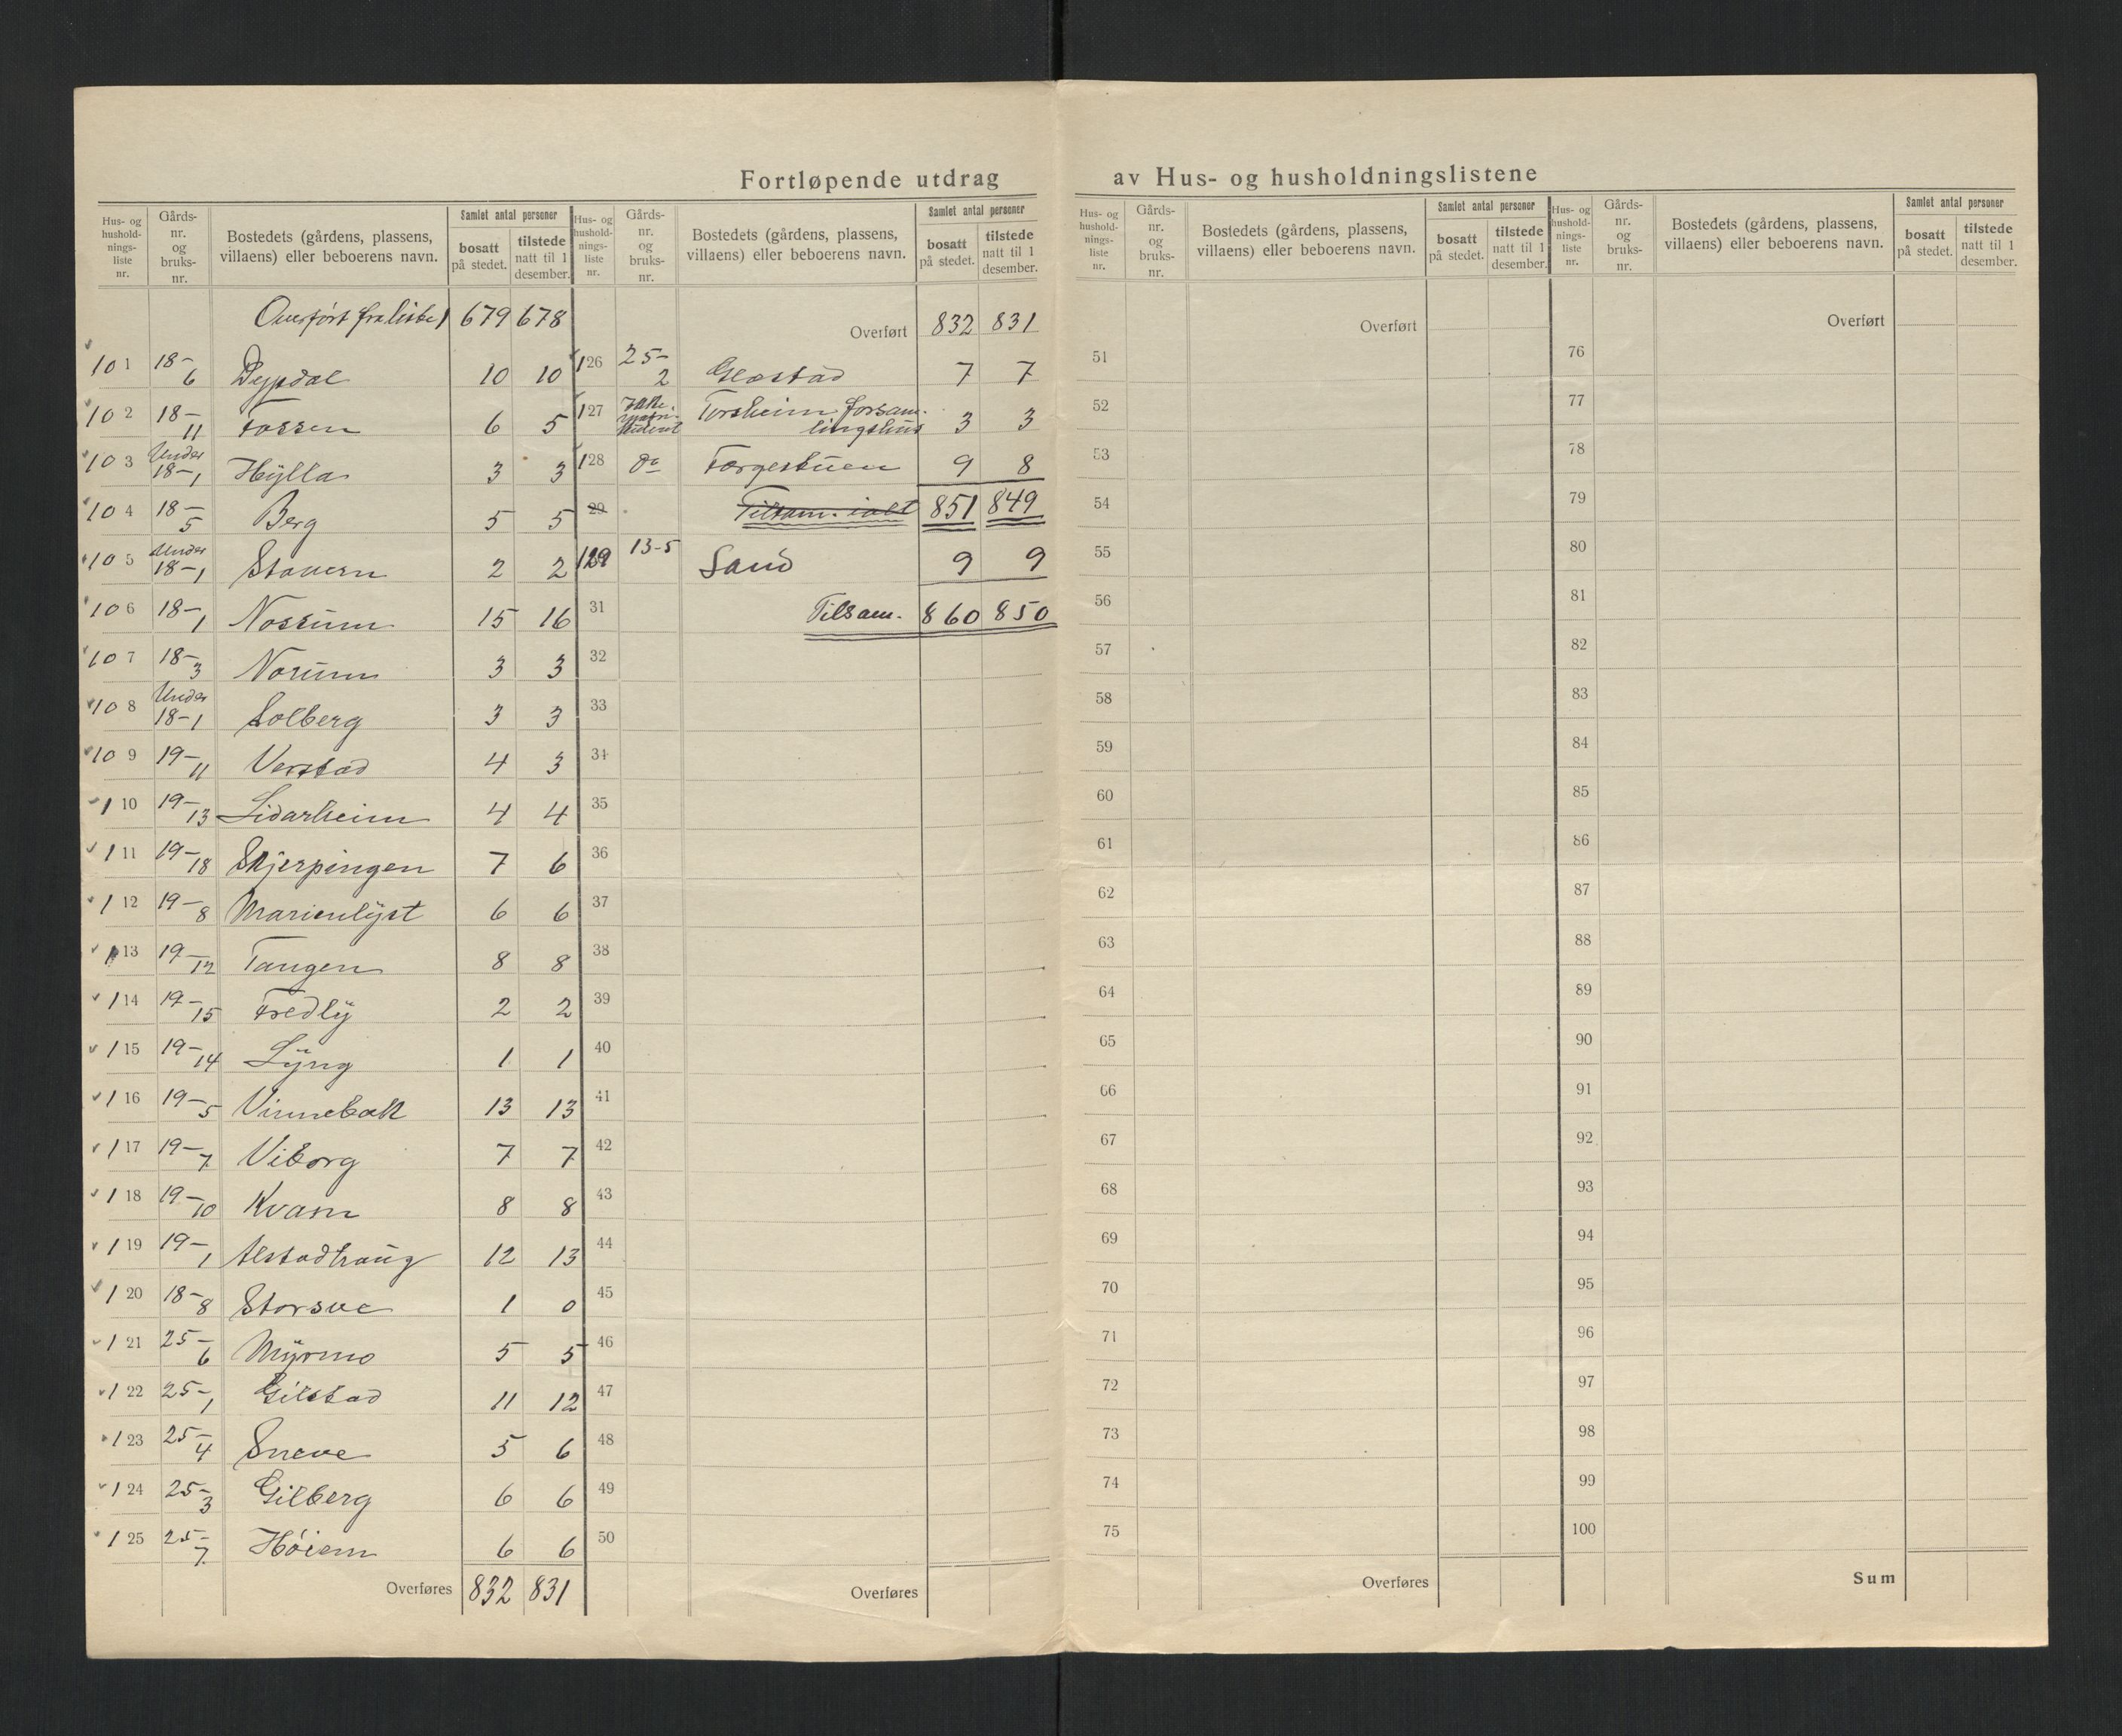 Fortløpende utdrag av Hus- og husholdningslistene
Hus- og hushold- nings- liste nr. | Gårds- nr. og bruks- nr. | Bostedets (gårdens, plassens, villaens) eller beboerens navn. | Samlet antal personer | bosatt på stedet. | tilstede natt til 1 desember.
Overført fra liste 1 679 678
101 18-6 Dypdal 10 10
102 18-11 Fossen 6 5
103 Under 18-1 Hylla 3 3
104 18-5 Berg 5 5
105 Under 18-1 Stavern 2 2
106 18-1 Nossum 15 16
107 18-3 Norum 3 3
108 Under 18-1 Solberg 3 3
109 19-11 Verstad 4 3
110 19-13 Lidarheim 4 4
111 19-18 Skjerpingen 7 6
112 19-8 Marienlyst 6 6
113 19-12 Tangen 8 8
114 19-15 Fredly 2 2
115 19-14 Lyng 1 1
116 19-5 Vinnebak 13 13
117 19-7 Viborg 7 7
118 19-10 Kvam 8 8
119 19-1 Alstadhaug 12 13
120 18-8 Storsve 1 0
121 25-6 Myrmo 5 5
122 25-1 Gilstad 11 12
123 25-4 Sneve 5 6
124 25-3 Gilberg 6 6
125 25-7 Høiem 6 6
Overføres 832 831
Hus- og hushold- nings- liste nr. | Gårds- nr. og bruks- nr. | Bostedets (gårdens, plassens, villaens) eller beboerens navn. | Samlet antal personer | bosatt på stedet. | tilstede natt til 1 desember.
Overført 832 831
126 25-2 Glostad 7 7
127 Ikke Torsheim forsam-
lingshus 3 3
128 do Forgestuen 9 8
29 Tilsam. ialt 851 849
129 13-5 Sand 9 9
31 Tilsam. 860 850
32
33
34
35
36
37
38
39
40
41
42
43
44
45
46
47
48
49
50
Overføres
Hus- og hushold- nings- liste nr. | Gårds- nr. og bruks- nr. | Bostedets (gårdens, plassens, villaens) eller beboerens navn. | Samlet antal personer | bosatt på stedet. | tilstede natt til 1 desember.
Overført
51
52
53
54
55
56
57
58
59
60
61
62
63
64
65
66
67
68
69
70
71
72
73
74
75
Overføres
Hus- og hushold- nings- liste nr. | Gårds- nr. og bruks- nr. | Bostedets (gårdens, plassens, villaens) eller beboerens navn. | Samlet antal personer | bosatt på stedet. | tilstede natt til 1 desember.
Overført
76
77
78
79
80
81
82
83
84
85
86
87
88
89
90
91
92
93
94
95
96
97
98
99
100
Sum